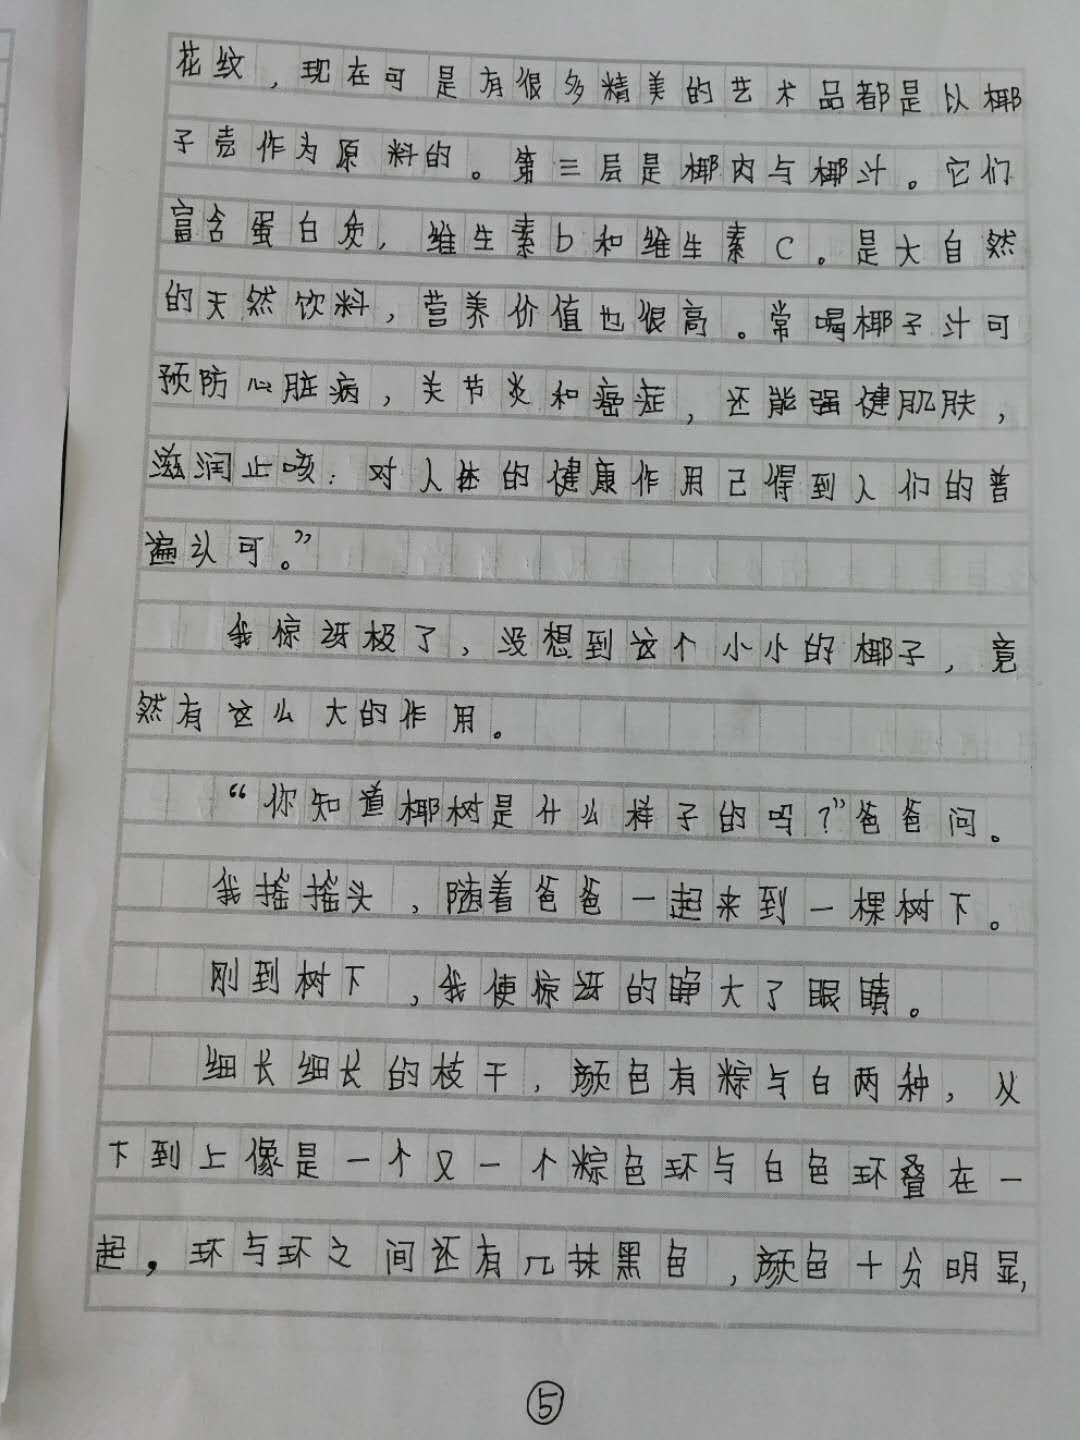 花纹，现在可是有很多精美的艺术品都是以椰
子壳作为原料的。第三层是椰肉与椰汁。它们
富含蛋白质，维生素b和维生素C。是大自然
的天然饮料，营养价值也很高。常喝椰子汁可
预防心脏病，关节炎和癌症，还能强健肌肤，
滋润止咳；对人体的健康作用已得到人们的普
遍认可。”
我惊讶极了，没想到这个小小的椰子，竟
然有这么大的作用。
“你知道椰树是什么样子的吗？”爸爸问。
我摇摇头，随着爸爸一起来到一棵树下。
刚到树下，我便惊讶的睁大了眼睛。
细长细长的枝干，颜色有粽与白两种，从
下到上像是一个又一个粽色环与白色环叠在一
起，环与环之间还有几抹黑色，颜色十分明显，
⑤